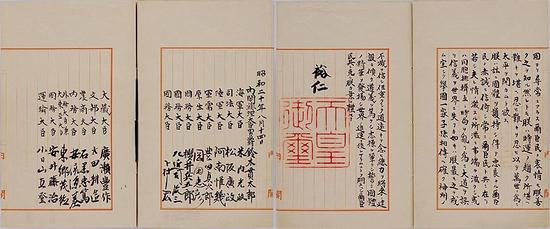 固ヨリ尋常ニアラス爾臣民ノ衷情モ朕善
ク之ヲ知ル然レトモ朕ハ時運ノ趨ク所堪ヘ
難キヲ堪ヘ忍ヒ難キヲ忍ヒ以テ萬世ノ為ニ
太平ヲ開カムト欲ス
朕ハ茲ニ國體ヲ護持シ得テ忠良ナル爾臣
民ノ赤誠ニ信倚シ常ニ爾臣民ト共ニ在リ
若シ夫レ情ノ激スル所濫ニ事端ヲ滋クシ或
ハ同胞排擠互ニ時局ヲ亂リ為ニ大道ヲ誤
リ信義ヲ世界ニ失フカ如キハ朕最モ之ヲ戒
ム宜シク擧國一家子孫相傳ヘ確ク神州ノ
不滅ヲ信シ任重クシテ道遠キヲ念ヒ總力ヲ將來ノ建
設ニ傾ケ道義ヲ篤クシ志操ヲ鞏クシ誓テ國體
ノ精華ヲ發揚シ世界ノ進運ニ後レサラムコトヲ期スヘシ爾臣
民其レ克ク朕カ意ヲ體セヨ
裕仁
天皇
御璽
昭和二十年八月十四日
内閣總理大臣男爵 鈴木貫太郎
海軍大臣 米内光政
司法大臣 松阪廣政
陸軍大臣 阿南惟幾
軍需大臣 豊田貞次郎
厚生大臣 岡田忠彦
國務大臣 櫻井兵五郎
國務大臣 左近司政三
國務大臣 下村宏
大藏大臣 廣瀬豊作
文部大臣 太田耕造
農商大臣 石黒忠篤
内務大臣 安倍源基
外務大臣兼大東亞大臣 東郷茂德
國務大臣 安井藤治
運輸大臣 小日山直登